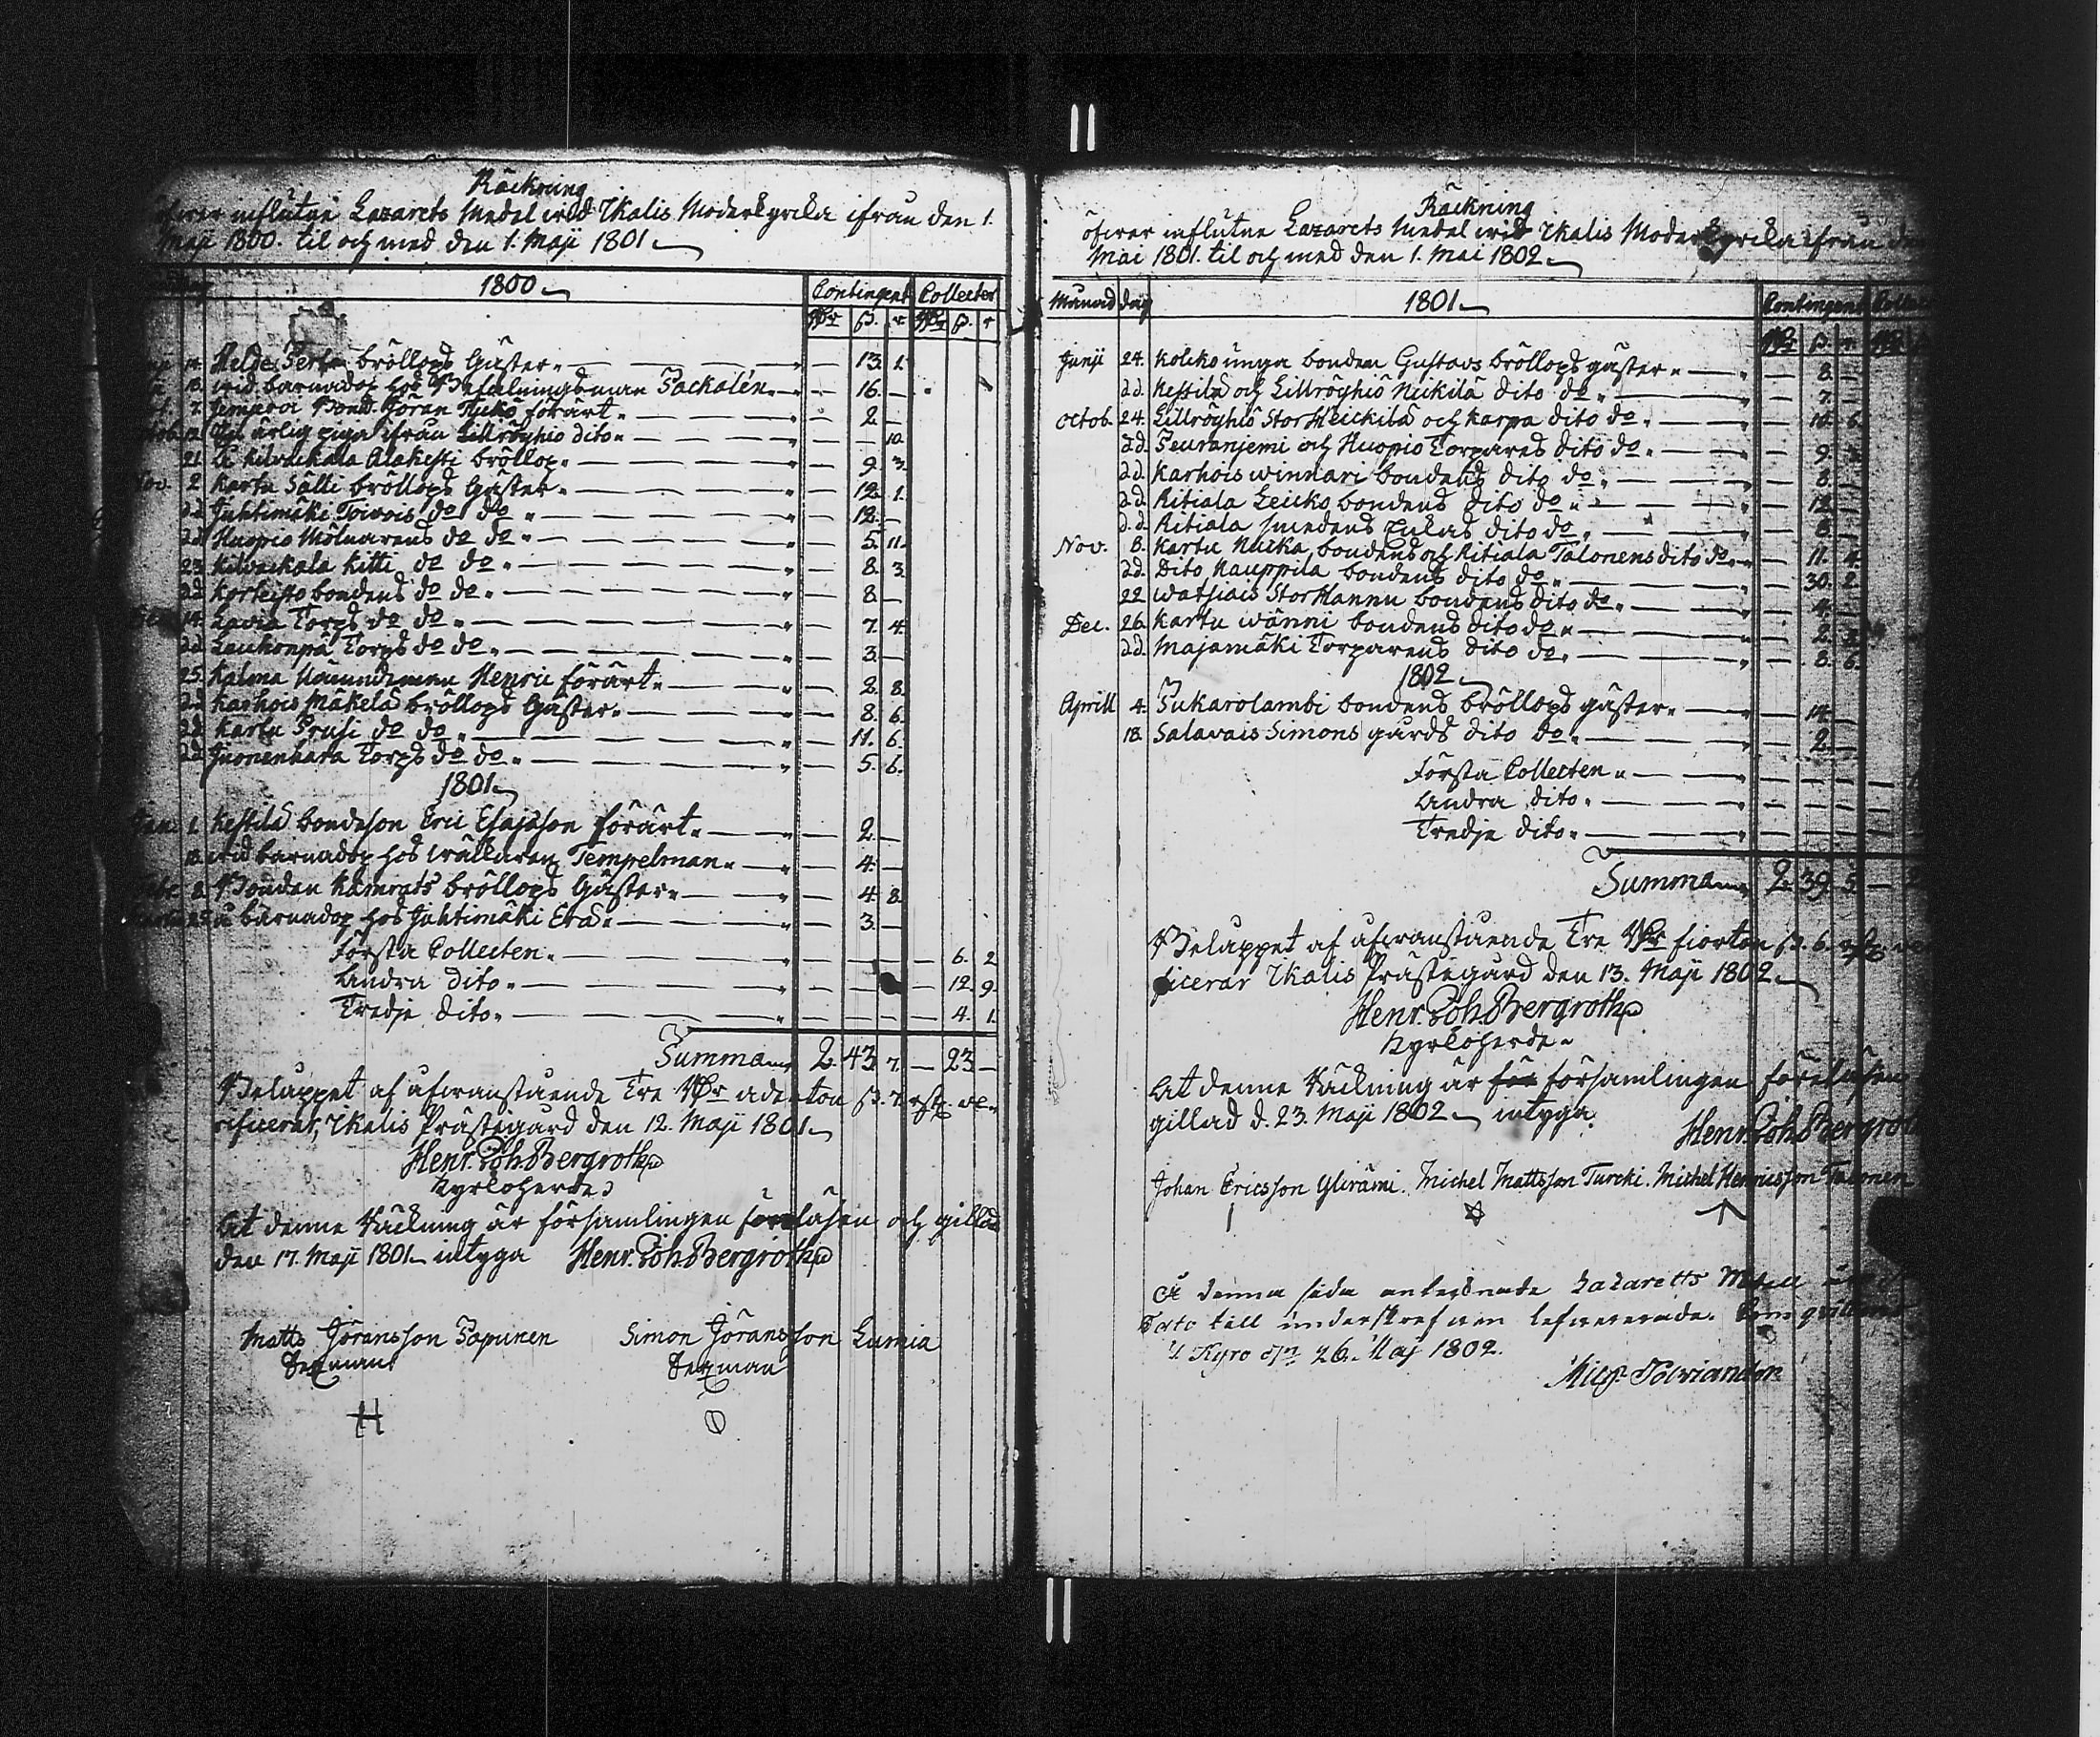 Räckning
öfwer influtne Lazarets Medel wid Ikalis Moderkyrcka ifrån den 1.
Maji 1800. til och med den 1. Maji 1801.
1800
Contingent Collecter
Rdr ß. r Rdr ß. r
Heldes Pertu bröllops Gäster 13. 1.
wid barnadop hos Befalningsman Packalén 16.
7. Jemijervi Bond. Jöran förärt 2.
ärlig piga ifrån Lillröyhiö dito 10.
21. Kilvackala Alakesti bröllop 9. 3.
Nov. 2. Kartu Sälli bröllops Gäster 12. 1.
dd Juhtimäki Toivois do do 12.
dd Huopio Mölnarens do do 5. 11.
23. Kilvackala Kitti do do 8. 3.
dd Korteisto bondens do do 8
14. Lavia Torps do do 7. 4.
dd Leukonpä Torps do do 3.
25. Kalma Nämndeman Henric förärt 2. 8.
dd Karhois Mäkelä bröllops Gäster 8. 6.
dd Kartu Prusi do do 11. 6.
dd Juonenhara Torps do do 5. 6.
1801
Jan. 1. Kestilä bondeson Eric Esajsson förärt 2.
wid barnadop hos Vällaren Tempelman 4.
8. Bonden Kamrats bröllops Gäster 4. 8.
å barnadop hos Juhtimäki Erä 3.
Första Collecten 6. 2
Andra dito 12. 9.
Tredje dito 4. 1.
Summa 2. 43. 7. — 23 —
Beluppet af ofwanstående Tre Rdr aderton ß. 7. rst. ve-
rificerar, Ikalis Prästegård den 12. Maji 1801.
Henr. Joh. Bergroth
Kyrkoherde
At denne Räckning är församlingen föreläsen och gillad
den 17. Maji 1801. intyga Henr. Joh. Bergroth
Matts Jöransson Papunen Simon Jöransson Lumia
Sexman Sexman
Räckning
öfwer influtne Lazarets Medel wid Ikalis Moderkyrcka ifrån den
Mai 1801. til och med den 1. Mai 1802.
Månad dag 1801 Contingent
Rdr ß. r.
Junji 24. Kolcko unga bonden Gustavs bröllops gäster 8.
dd. Kestilä och Lillröyhiö Nickilä dito do 7.
Octob. 24. Lillröyhiö StorHeickilä och Karpa dito do 10. 6.
dd. Peuranjemi och Huopio Torpares dito do 9. 3.
dd. Karhois Winnari bondens dito do 8.
dd. Ritiala Leicko bondens dito do 12.
d.d. Ritiala smedens Lukas dito do 8.
Nov. 8. Kartu Nucka bondens och Ritiala Talonens dito do 11. 4.
dd. Dito Kauppila bondens dito do 30. 2.
22. Watsiais StorHannu bondens dito do 4.
Dec. 26. Kartu Wänni bondens dito do 2. 3.
dd. Majamäki Torparens dito do 8. 6.
1802
Aprill 4. Sukarolambi bondens bröllops gäster 14.
18. Salavais Simons gårds dito do 2.
Första Collecten
Andra dito
Tredje dito
Summa 2. 39. 5.
Beluppet af ofwanstående Tre Rdr fiorton ß. 6. rst. ve-
ficerar Ikalis Prästegård den 13. Maji 1802.
Henr. Joh. Bergroth
Kyrkoherde
At denne Räckning är för församlingen föreläsen
gillad d. 23. Maji 1802. intyga.
Henr. Joh. Bergroth
Johan Ericsson Yliräini. Michel Mattsson Turcki. Michel Henricsson Talonen
Å denna sida antecknade Lazaretts Medel
Dato till underskrefven lefvererade.
Kyro d. 26. Maj 1802.